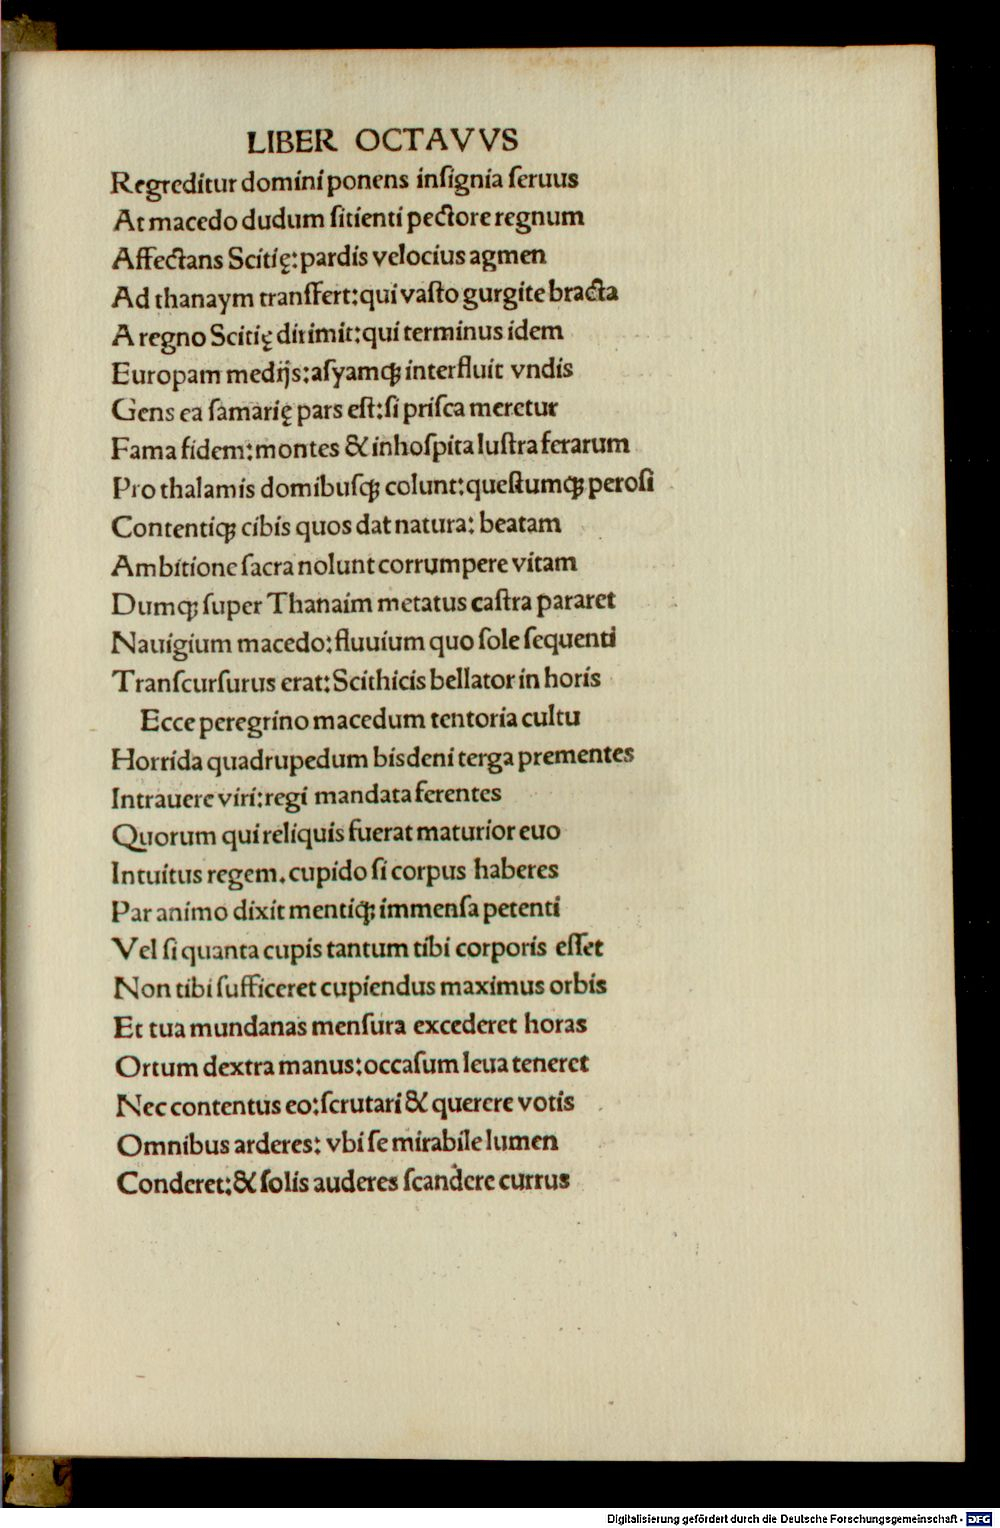 LIBER OCTAVVS
Regreditur domini ponens inſignia ſeruus
At macedo dudum ſitienti pectore regnum
Affectans Scitię: pardis velocius agmen
Ad thanaym tranſfert: qui vaſto gurgite bracta
A regno Scitię dirimit: qui terminus idem
Europam medijs: aſyamqꝫ interfluit vndis
Gens ea ſamarię pars eſt: ſi priſca meretur
Fama fidem: montes & inhoſpita luſtra ferarum
Pro thalamis domibuſqꝫ colunt: queſtumqꝫ peroſi
Contentiqꝫ cibis quos dat natura: beatam
Ambitione ſacra nolunt corrumpere vitam
Dumqꝫ ſuper Thanaim metatus caſtra pararet
Nauigium macedo: fluuium quo ſole ſequenti
Tranſcurſurus erat: Scithicis bellator in horis
Ecce peregrino macedum tentoria cultu
Horrida quadrupedum bisdeni terga prementes
Intrauere viri: regi mandata ferentes
Quorum qui reliquis fuerat maturior euo
Intuitus regem. cupido ſi corpus haberes
Par animo dixit mentiqꝫ immenſa petenti
Vel ſi quanta cupis tantum tibi corporis eſſet
Non tibi ſufficeret cupiendus maximus orbis
Et tua mundanas menſura excederet horas
Ortum dextra manus: occaſum leua teneret
Nec contentus eo: ſcrutari & querere votis
Omnibus arderes: vbi ſe mirabile lumen
Conderet: & ſolis auderes ſcandere currus
Digitalisierung gefördert durch die Deutsche Forschungsgemeinschaft - DFG